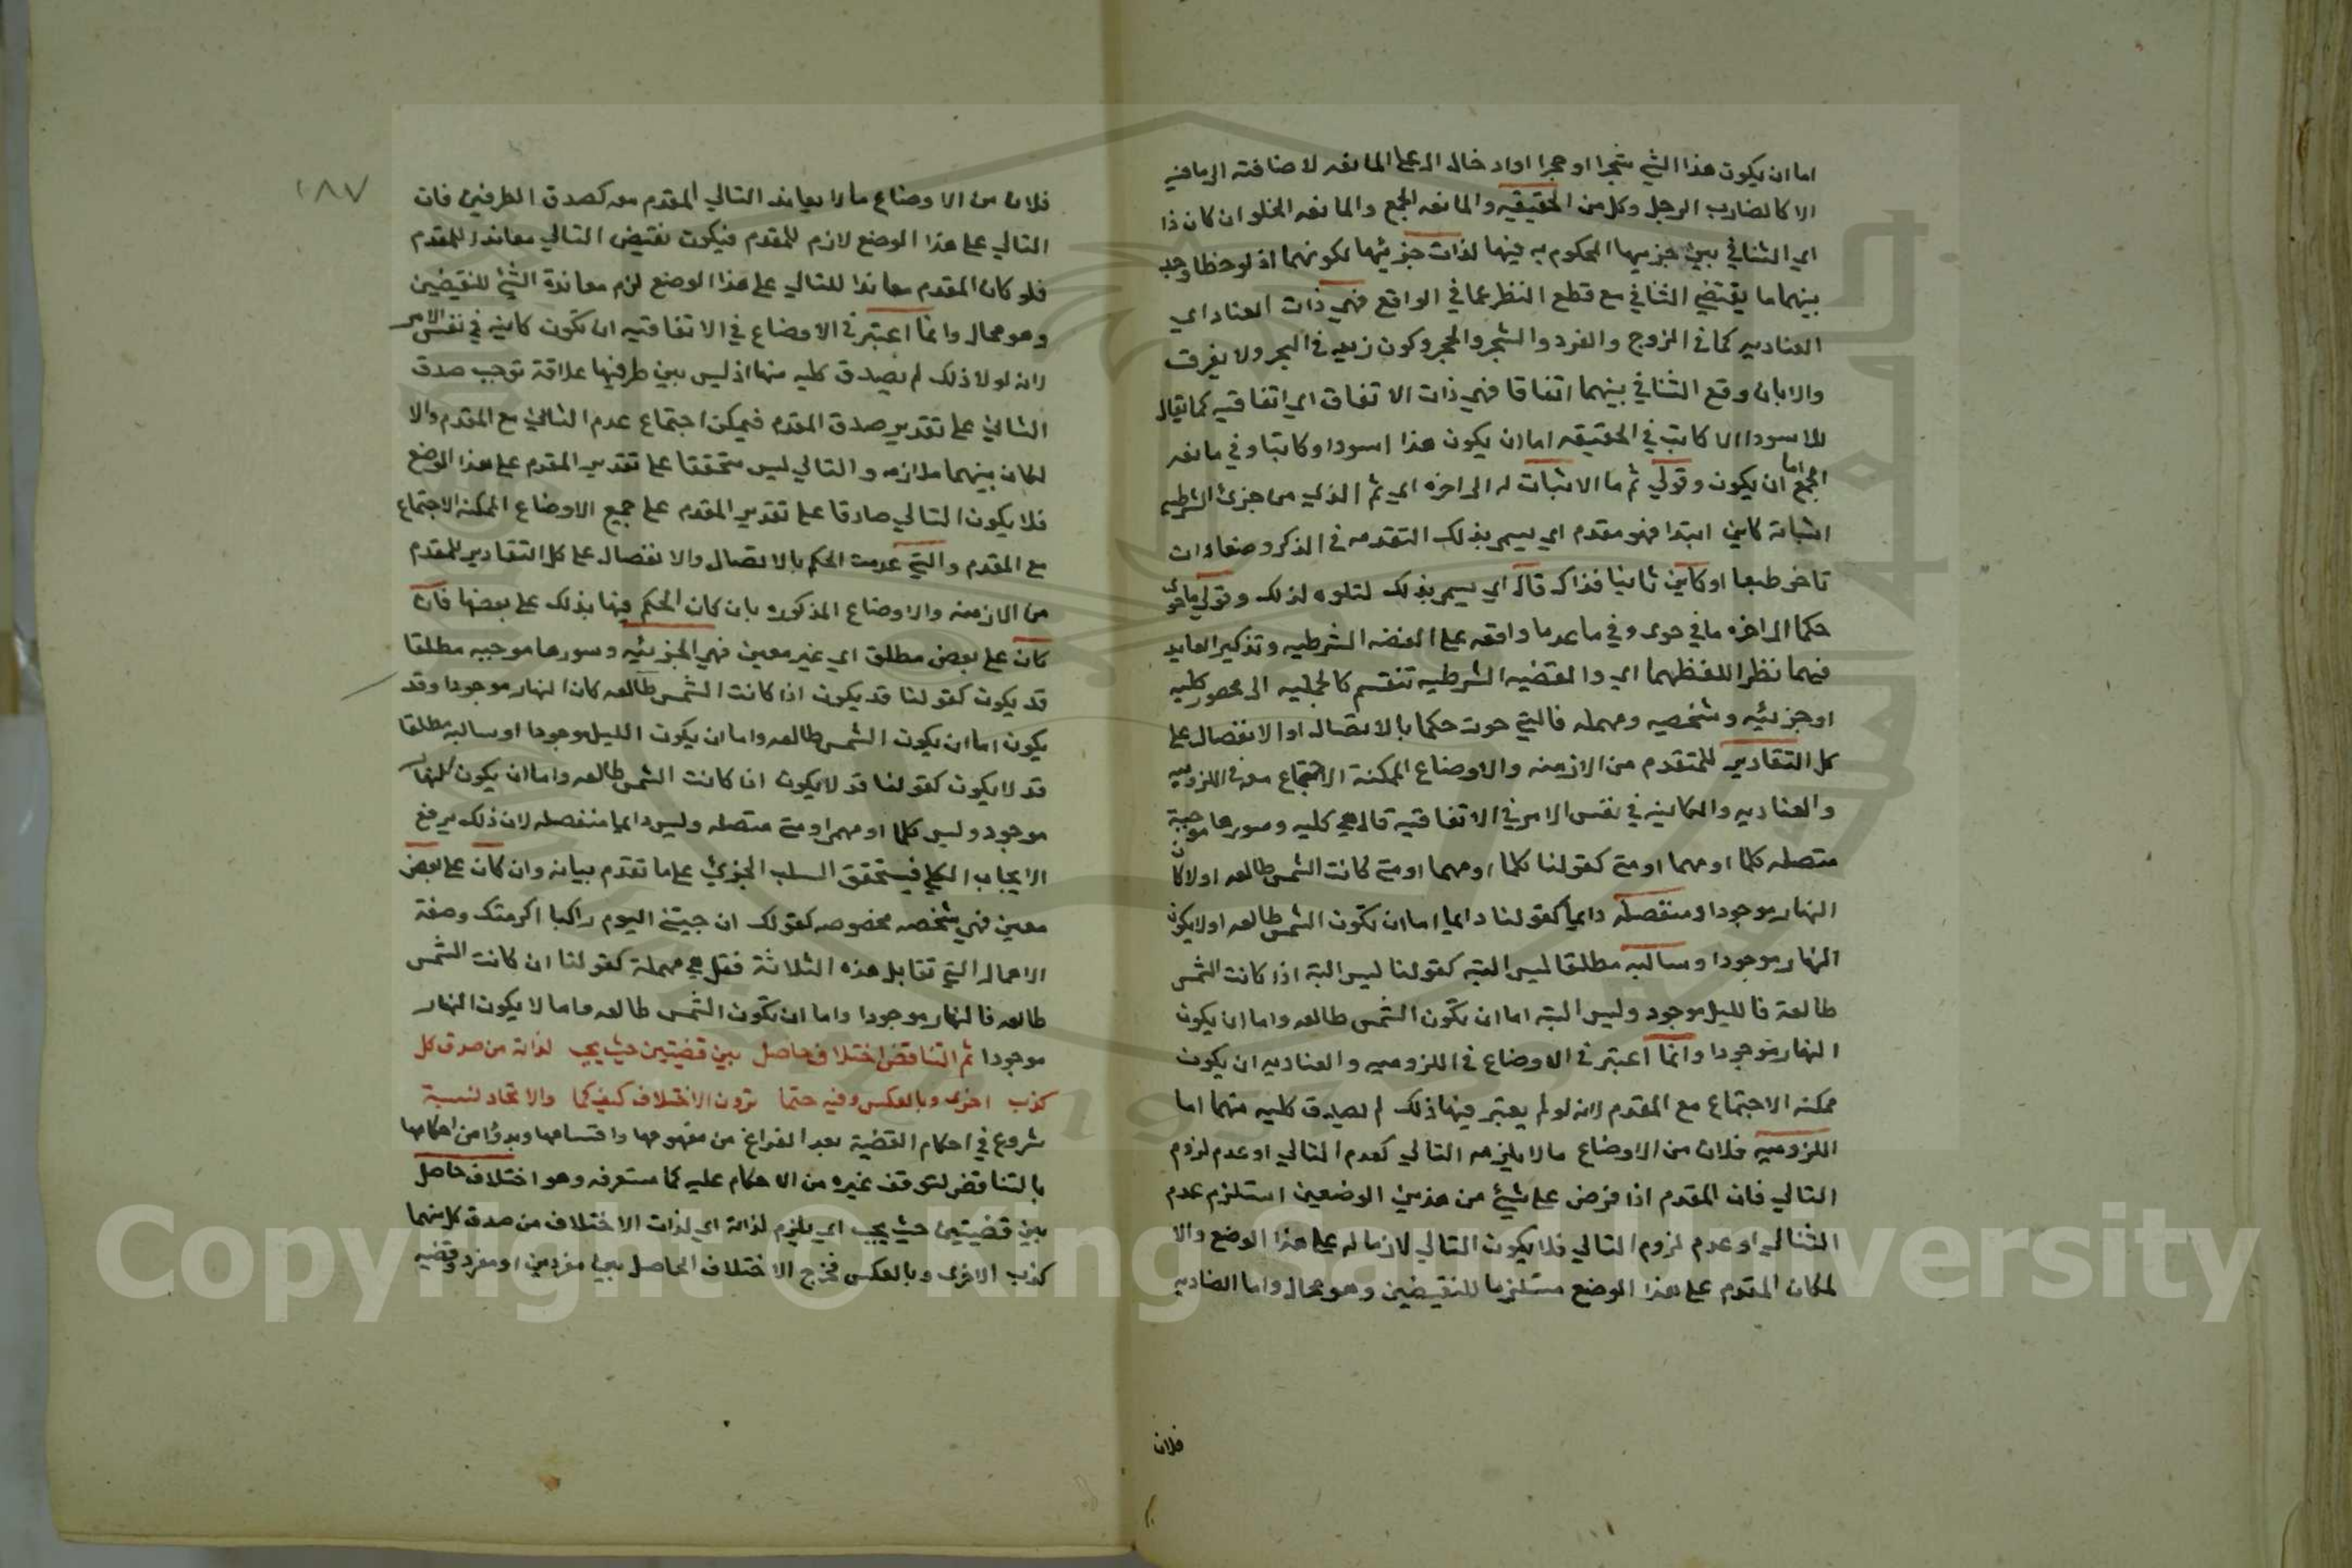 اما ان يكون هذا الشي شجرا او حجرا وادخال ال على المانعه لاضافته الى ما فيه
الا كالضارب الرجل وكل من الحقيقيه والمانعه الجمع والمانعه الخلو ان كان ذا
اي التنافي بين جزييها المحكوم به فيها لذات جزئيها لكونهما اذ لوحظا وجد
بينهما ما يقتضي التنافي مع قطع النظر عما في الواقع فهي ذات العناد اي
العناديه كما في الزوج والفرد والشجر والحجر وكون زيد في البحر ولا يغرق
والا بان وقع التنافي بينهما اتفاقا فهي ذات الاتفاق اي اتفاقيه كما يقال
للاسود اللا كاتب في الحقيقه اما ان يكون هذا اسود او كاتبا وفي مانعه
الجمع اما ان يكون وقولي ثم ما الاثبات له الى اخره اي ثم الذي من جزئ الشرطيه
اثباته كاين ابتدا فهو مقدم اي يسمى بذلك لتقدمه في الذكر وضعا وان
تاخر طبعا او كاين ثانيا فذاك تال اي يسمى بذلك لتلوه لذلك وقولي ما حوى
حكما الى اخره ما في حوى وفي ما عدما واقعه على القضيه الشرطيه وتذكير العايد
فيهما نظرا للفظهما اي والقضيه الشرطيه تنقسم كالحمليه الى محصور كليه
او جزئيه وشخصيه ومهمله فالتي حوت حكما بالاتصال او الانفصال على
كل التقادير للمتقدم من الازمنه والاوضاع الممكنة الاجتماع معه في اللزوميه
والعناديه والكاينه في نفس الامر في الاتفاقيه قال هي كليه وسورها موجبة
متصله كلما او مهما او متى كقولنا كلما او مهما او متى كانت الشمس طالعه او لا كان
النهار موجودا ومنفصله دايما كقولنا دايما اما ان تكون الشمس طالعه او لا يكون
النهار موجودا وسالبه مطلقا ليس البته كقولنا ليس البتة اذا كانت الشمس
طالعة فالليل موجود وليس البتة اما ان تكون الشمس طالعه واما ان يكون
النهار موجودا وانما اعتبر في الاوضاع في اللزوميه والعناديه ان يكون
ممكنه الاجتماع مع المقدم لانه لو لم يعتبر فيها ذلك لم تصدق كليه منهما اما
اللزوميه فلان من الاوضاع ما لا يلزمه التالي كعدم التالي او عدم لزوم
التالي فان المقدم اذا فرض على شيئ من هذين الوضعين استلزم عدم
التالي او عدم لزوم التالي فلا يكون التالي لازما له على هذا الوضع والا
لكان المقدم على هذا الوضع مستلزما للنقيضين وهو محال واما العناديه
فلان
١٨٧
فلان من الاوضاع ما لا يعاند التالي المقدم معه كصدق الطرفين فان
التالي على هذا الوضع لازم للمقدم فيكون نقيض التالي معاندا للمقدم
فلو كان المقدم معاندا للتالي على هذا الوضع لزم معاندة الشئ للنقيضين
وهو محال وانما اعتبر في الاوضاع في الاتفاقيه ان تكون كاينه في نفس الامر
لانه لولا ذلك لم يصدق كليه منها اذ ليس بين طرفيها علاقة توجب صدق
التالي على تقدير صدق المقدم فيمكن اجتماع عدم التالي مع المقدم والا
لكان بينهما ملازمه والتالي ليس متحققا على تقدير المقدم على هذا الوضع
فلا يكون التالي صادقا على تقدير المقدم على جميع الاوضاع الممكنه الاجتماع
مع المقدم والتي عدمت الحكم بالاتصال والانفصال على كل التقادير للمقدم
من الازمنه والاوضاع المذكوره بان كان الحكم فيها بذلك على بعضها فان
كان على بعض مطلق اي غير معين فهي الجزئيه وسورها موجبه مطلقا
قد يكون كقولنا قد يكون اذا كانت الشمس طالعه كان النهار موجودا وقد
يكون اما ان يكون الشمس طالعه واما ان يكون الليل موجودا وسالبة مطلقا
قد لا يكون كقولنا قد لا يكون اذا كانت الشمس طالعه واما ان يكون النهار
موجود وليس كلما او مهما او متى متصله وليس دايما منفصله لان ذلك يرفع
الايجاب الكلي فيتحقق السلب الجزئي على ما تقدم بيانه وان كان على بعض
معين فهي شخصه مخصوصه كقولك ان جيتني اليوم راكبا اكرمتك وصفة
الاهمال التي تقابل هذه الثلاثة فقل هي مهملة كقولنا ان كانت الشمس
طالعه فالنهار موجودا واما ان تكون الشمس طالعه واما لا يكون النهار
موجودا ثم التناقض اختلاف حاصل بين قضيتين حيث يجب لذاته من صدق كل
كذب اخرى وبالعكس وفيه حتما ترون الاختلاف كيف كما والاتحاد لنسبة
شروع في احكام القضية بعد الفراغ من مفهومها واقسامها وبدؤا من احكامها
بالتناقض لتوقف غيره من الاحكام عليه كما ستعرفه وهو اختلاف حاصل
بين قضيتين حيث يجب اي يلزم لذاته اي لذات الاختلاف من صدق كل منهما
كذب الاخرى وبالعكس فخرج الاختلاف الحاصل بين مفردين او مفرد وقضيه
Copyright © King Saud University